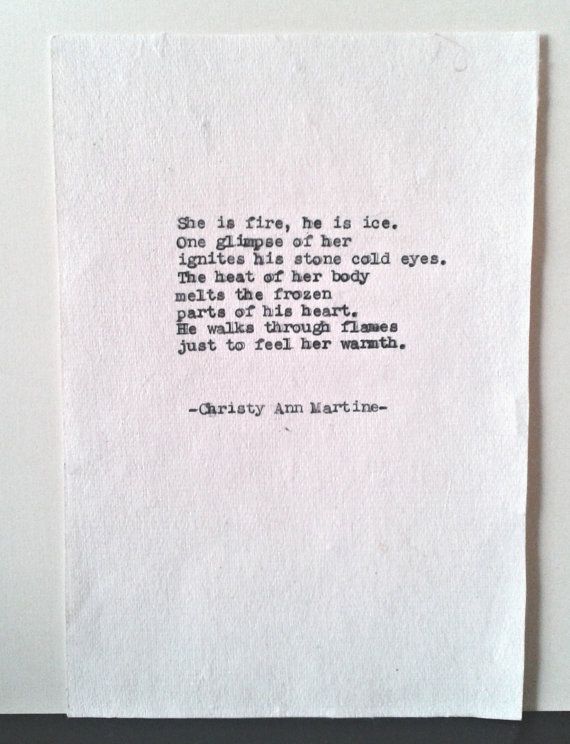 She is fire, he is ice.
One glimpse of her
ignites his stone cold eyes.
The heat of her body
melts the frozen
parts of his heart.
He walks through flames
just to feel her warmth.
-Christy Ann Martine-